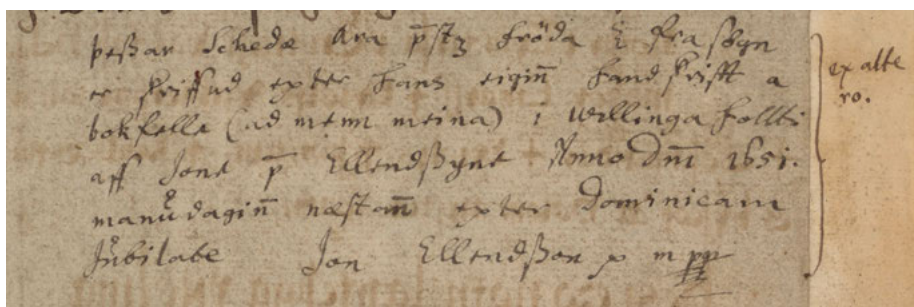 þeßar Schedæ Ara p̄stz fröda & frasögn
er skriffud epter hans eigiñ handskrifft a
bokfelle (ad menn meina) i Willingahollti
aff Jone p̄ Ellendßyne Anno Dm̄ 1651.
manudagiñ næstañ epter Dominicam
Jubilate Jon Ellendßon p mpp
ex alte
ro.